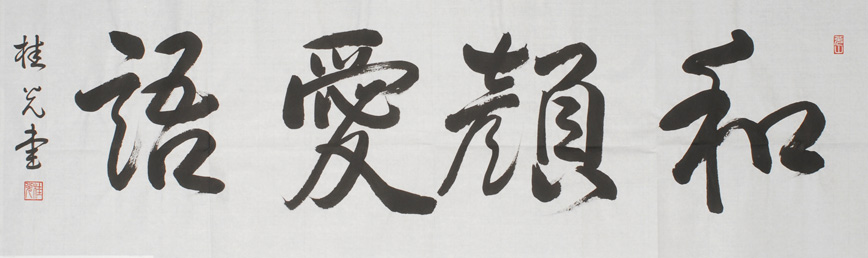 和顔愛語
桂光書